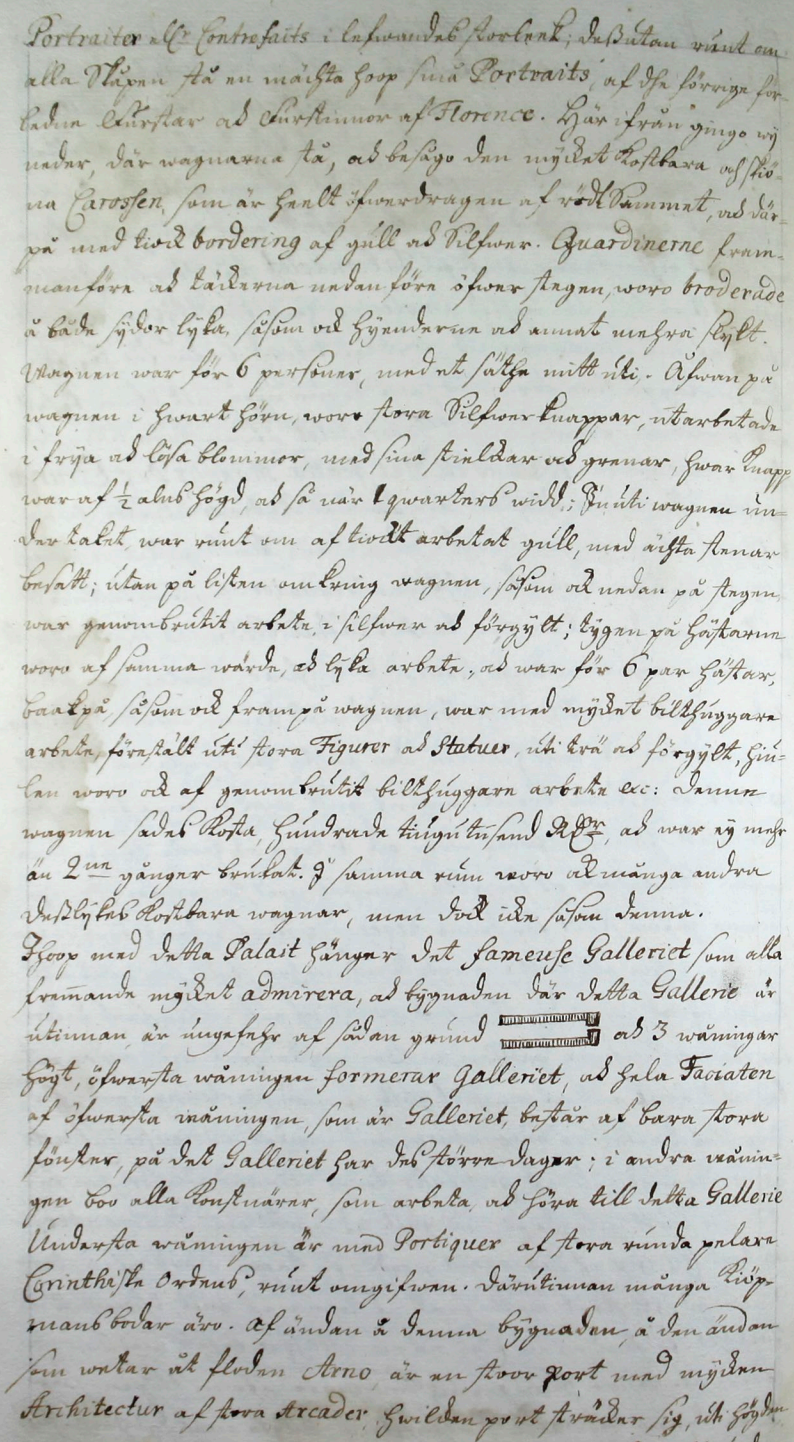 Portraiter ellr Contrefaits i lefwandes storleek; dessutan runt om
alla Skåpen stå en mächta hoop små Portraits, af dhe förrige för-
ledne Furstar och Furstinnor af Florence. Här ifrån gingo wij
neder, där wagnarna stå, och besågo den mycket kostbara och skiö-
na Carossen, som är heelt öfwerdragen af rödt Sammet, och där-
på med tiock bordering af gull och Silfwer. Guardinerne fram-
manföre och täckerna nedanföre öfwer stegen, woro broderade
å både sydor lyka, såsom ock hyenderne och annat mehra slykt.
Wagnen war för 6 personer, med et säthe mitt uti. Åfwan på
wagnen i hwart hörn, woro stora Silfwerknappar, utarbetade
i frya och lösa blommor, med sina stielckar och grenar, hwar Knapp
war af ½ alns högd, och så när 1 qwarters widd; Inuti wagnen un-
der taket, war runt om af tiockt arbetat gull, med ächta stenar
besatt; utan på listen omkring wagnen, såsom ock nedan på stegen,
war genombrutit arbete, i silfwer och förgylt; tygen på hästarne
woro af samma wärde, och lyka arbete, och war för 6 par hästar,
baak på, såsom ock fram på wagnen, war med mycket bilthuggare
arbete, förestält uti stora Figurer och Statuer, uti trä och förgylt, hiu-
len woro ock af genombrutit bilthuggare arbete &c: denne
wagnen sades kosta, hundrade tiugutusend RDlr, och war ey mehr
än 2ne gånger brukat. I samma rum woro ock många andra
desslykes kostbara wagnar, men dock icke såsom denna.
Ihoop med detta Palait hänger det fameuse Galleriet som alla
fremande mycket admirera, och bygnaden där detta Gallerie är
utinnan, är ungefehr af sådan grund och 3 wåningar
högt, öfwersta wåningen formerar Galleriet, och hela Faciaten
af öfwersta wåningen, som är Galleriet, består af bara stora
fönster, på det Galleriet har des större dager; i andra wånin-
gen boo alla Konstnärer, som arbeta, och höra till detta Gallerie
Understa wåningen är med Portiquer af stora runda pelare
Corinthiske Ordens, runt omgifwen. Därutinnan många Kiöp-
mans bodar äro. Af ändan å denna bygnaden, å den ändan
som wetar åt floden Arno är en stoor port med mycken
Architectur af stora Arcader, hwilcken port sträcker sig, uti högden